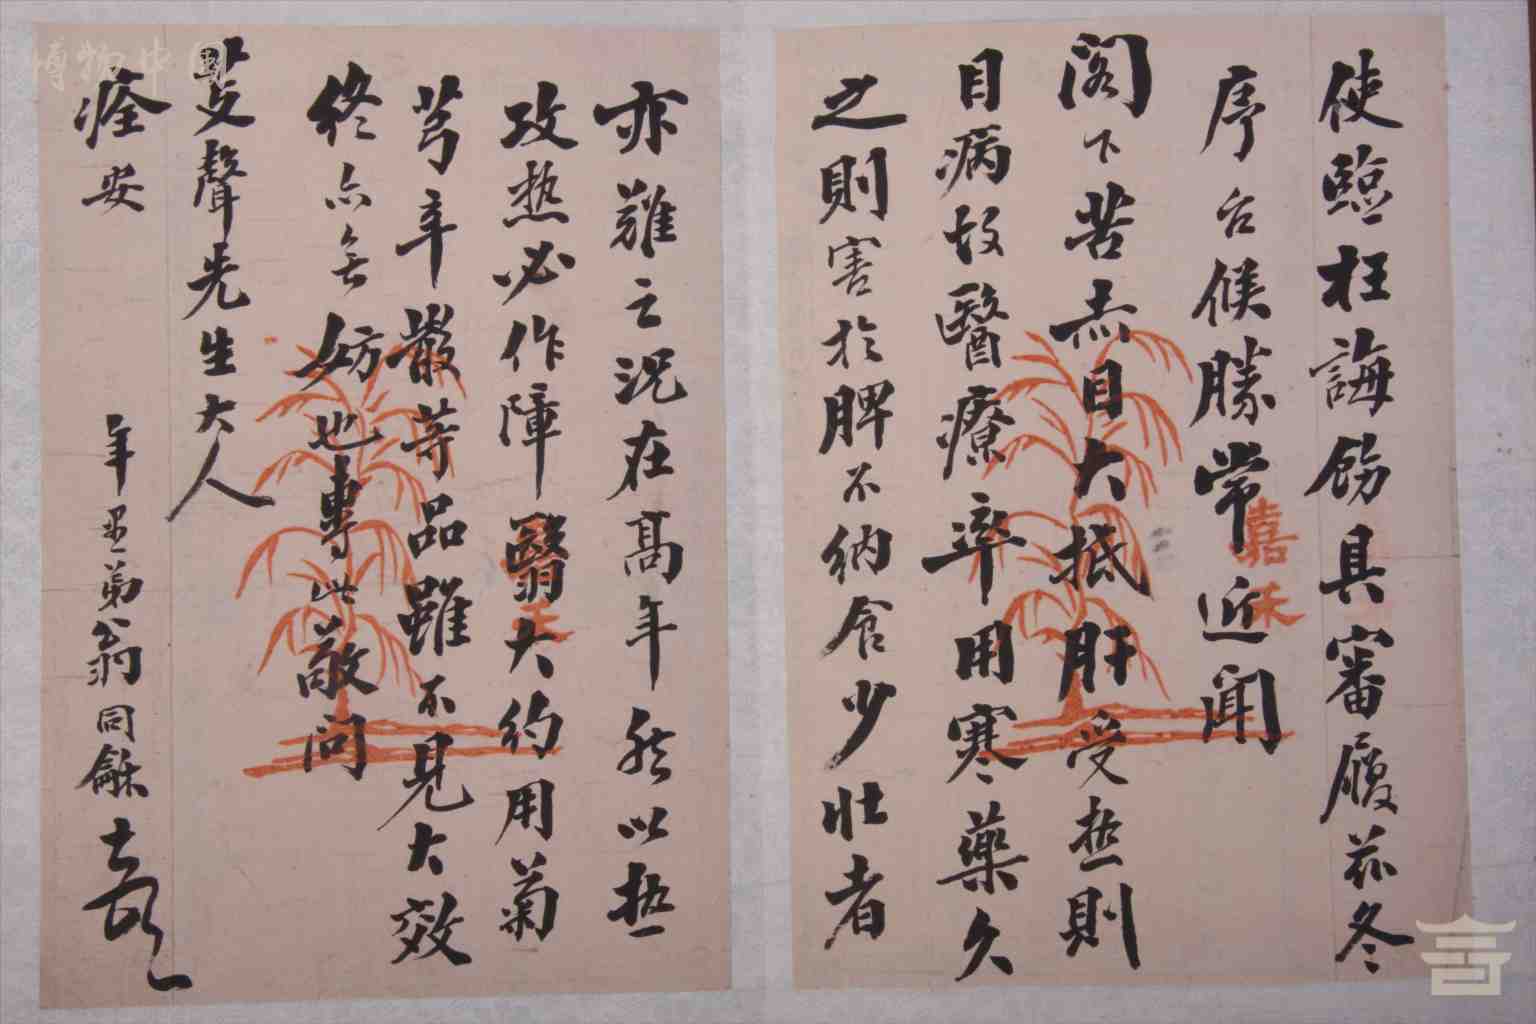 使臨枉誨飭具審履茲冬
序台候勝常近聞
閣下苦赤目大抵肝受热則
目病故醫療率用寒藥久
之則害於脾不納食少壯者
亦難之況在高年然以热
攻热必作障翳大約用菊
芎辛散等品雖不見大效
終亦無妨也專此敬問
聲先生大人
痊安
年愚弟翁同龢
嘉禾
博物中國